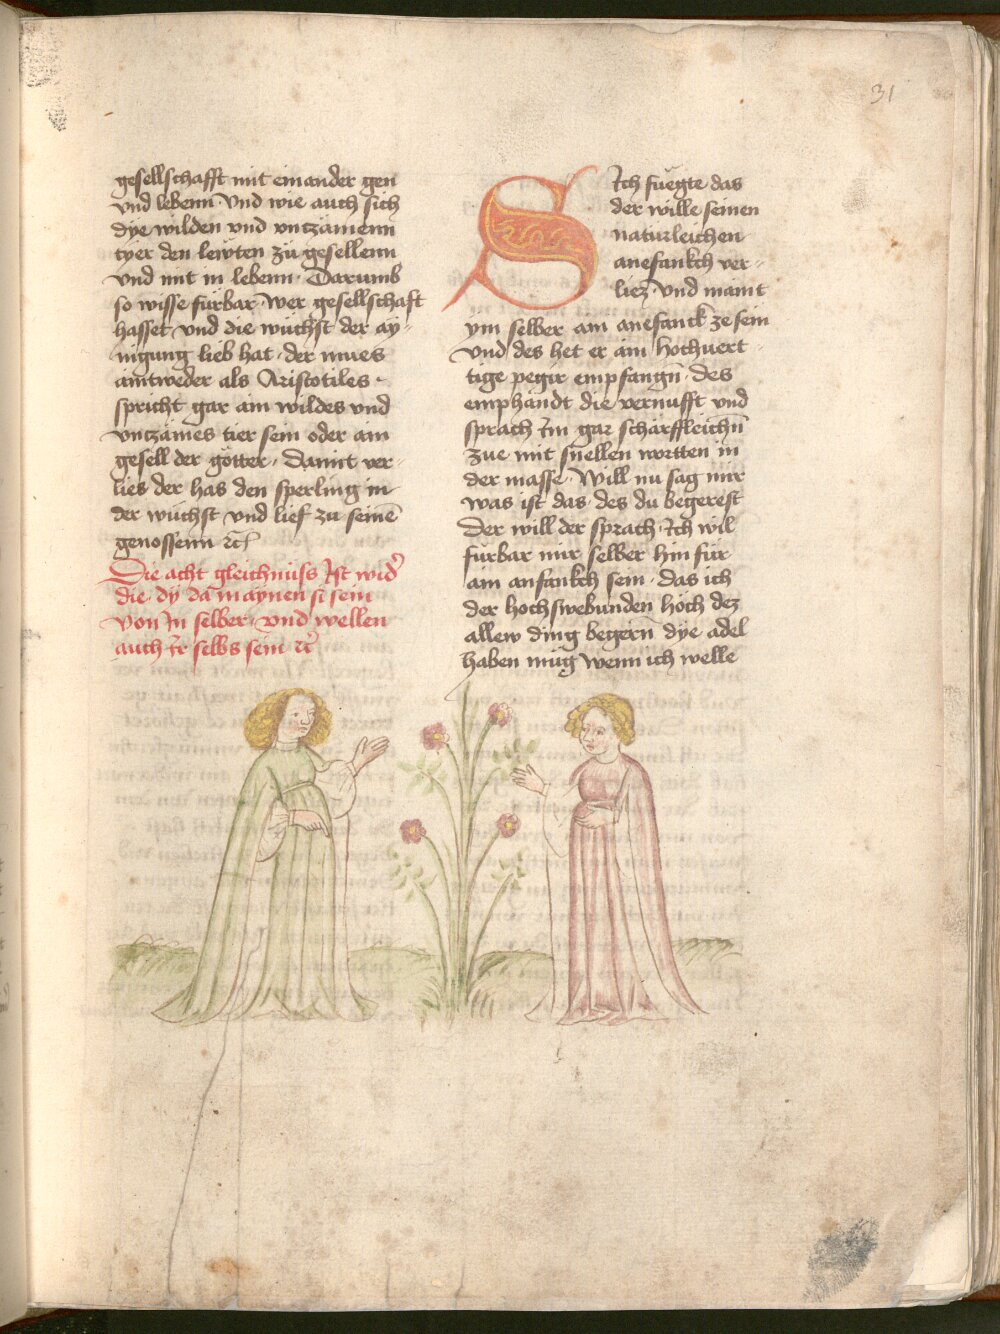 31
gesellschafft mit einander gen
vnd lebenn · Vnd wie auch sich
dye wilden vnd vnczämenn
tyer den lewten zü gesellenn
vnd mit in lebenn · Darumb
so wisse fürbar · wer gesellschaft
hasset vnd die wüchst der ay-
nigung lieb hat · der mues
aintweder als Aristotiles
spricht gar ain wildes vnd
vnczämes tier sein oder ain
gesell der götter · Damit ver-
lies der has den sperling in
der wüchst vnd lief zu seinē
genossenn ꝛc
Die acht gleichnüss Ist wid̄
die · dÿ da maÿnen si sein
von In selber · vnd wellen
auch Ir selbs sein ꝛc
Sich fuegte das
der wille seinen
naturleichen
anefankch ver-
liez · vnd maint
ym selber am anefanck ze sein
vnd des het er ain hochuert-
tige pegir empfangn̄ · des
emphandt die vernufft vnd
sprach Im gar scharffleichn̄
zue mit snellen wortten in
der masse · Will nu sag mir
was ist das · des du begerest
Der will der sprach · Ich wil
fürbar mir selber hin für
ain anfankch sein · das ich
der hochswebunden höch dez
allew ding begern̄ dye adel
haben müg wenn ich welle